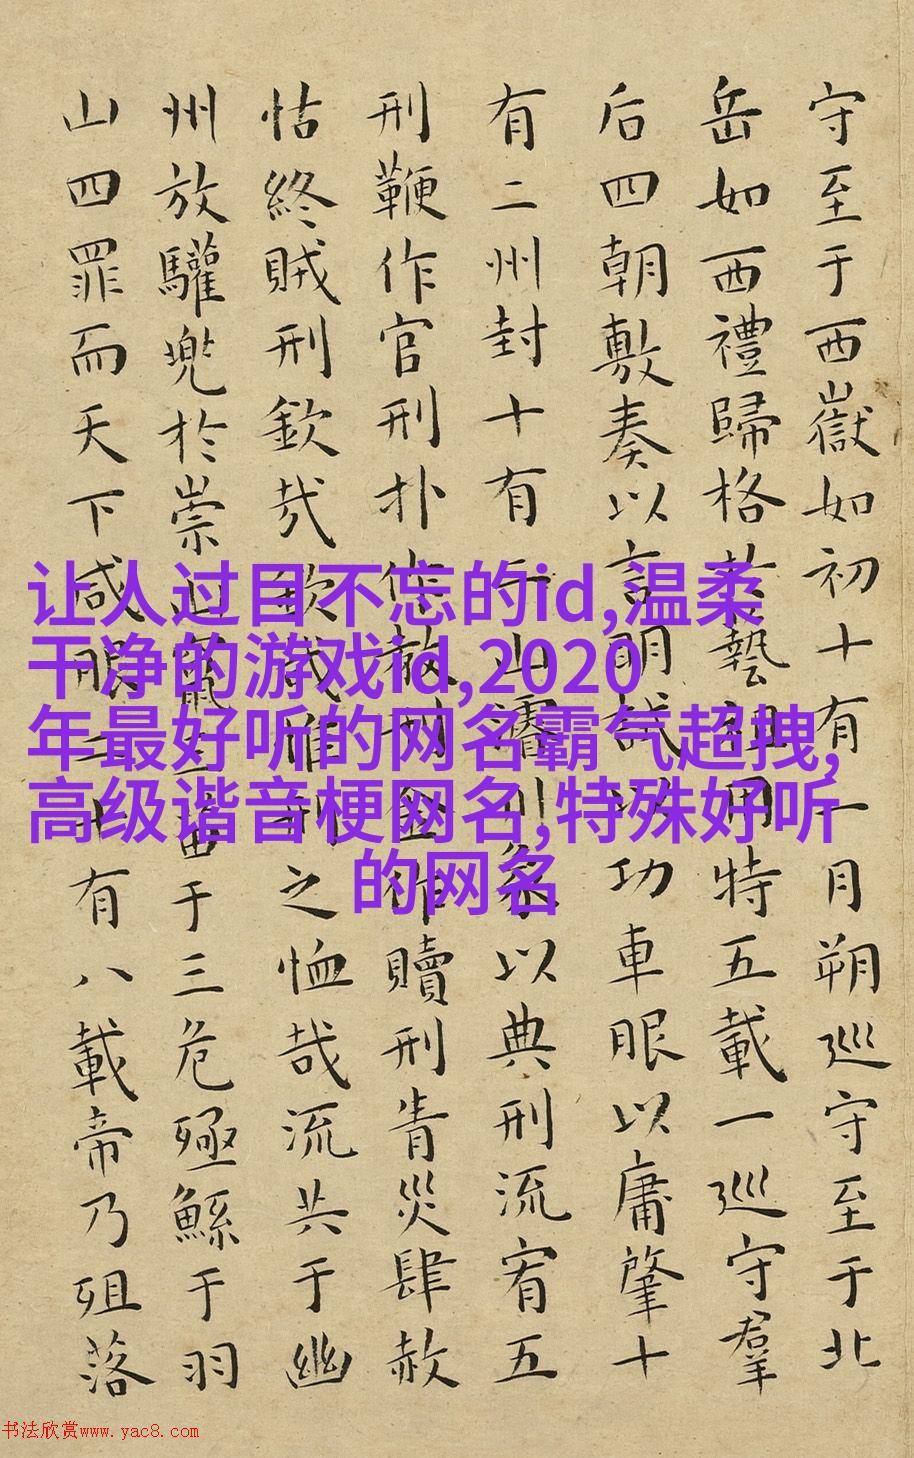 守至于西嶽如初十有一月朔巡守至于北
岳如西禮歸格於藝祖用特五載一巡守羣
后四朝敷奏以言明試以功車眼以庸肇十
有二州封十有二山濬川象以典刑流宥五
刑鞭作官刑扑作教刑金作贖刑眚災肆赦
怙終賊刑欽哉欽哉惟刑之恤哉流共于幽
州放驩兜於崇山竄三苗于三危殛鯀于羽
山四罪而天下咸服二十有八載帝乃殂落
让人过目不忘的id,温柔
干净的游戏id,2020
年最好听的网名霸气超拽,
高级谐音梗网名,特殊好听
的网名
书法欣赏www.yac8.com